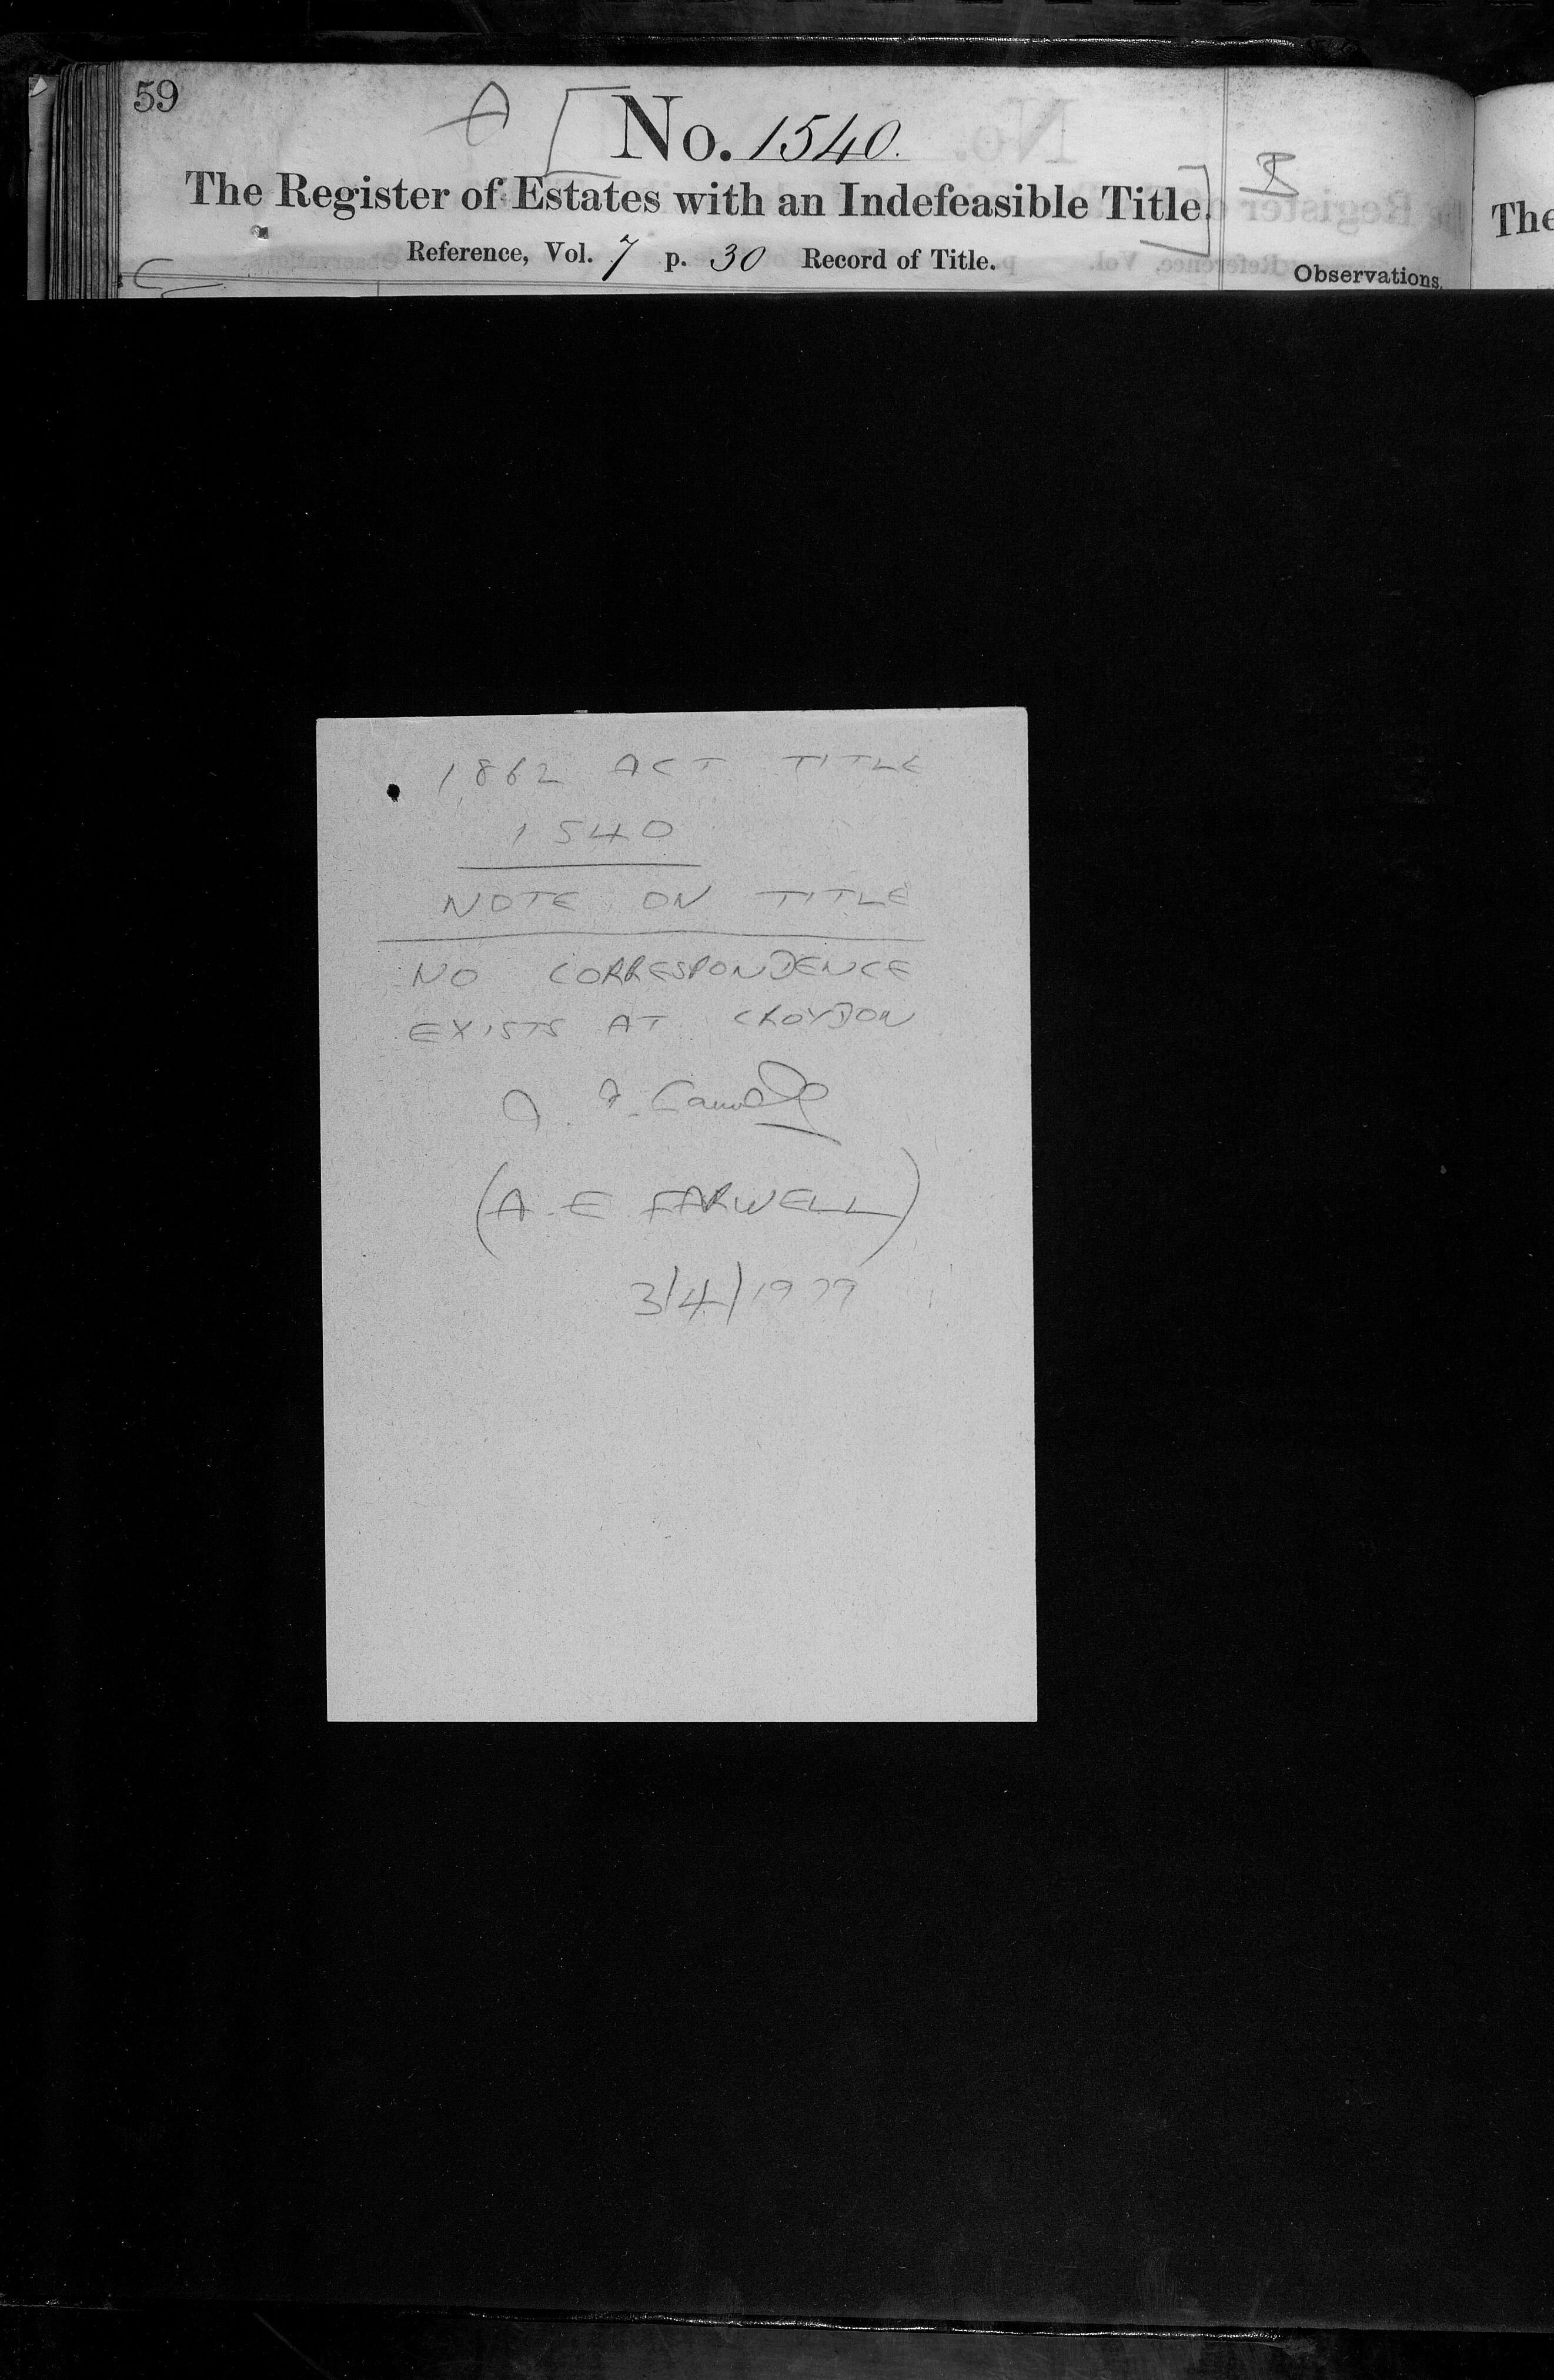 59
A [ No. 1540.
The Register of Estates with an Indefeasible Title. ] B
Reference, Vol. 7 p. 30 Record of Title.
Observations.
The
1862 ACT TITLE
1540
NOTE ON TITLE
NO CORRESPONDENCE
EXISTS AT CROYDON
(A. E FARWELL)
3/4/1979